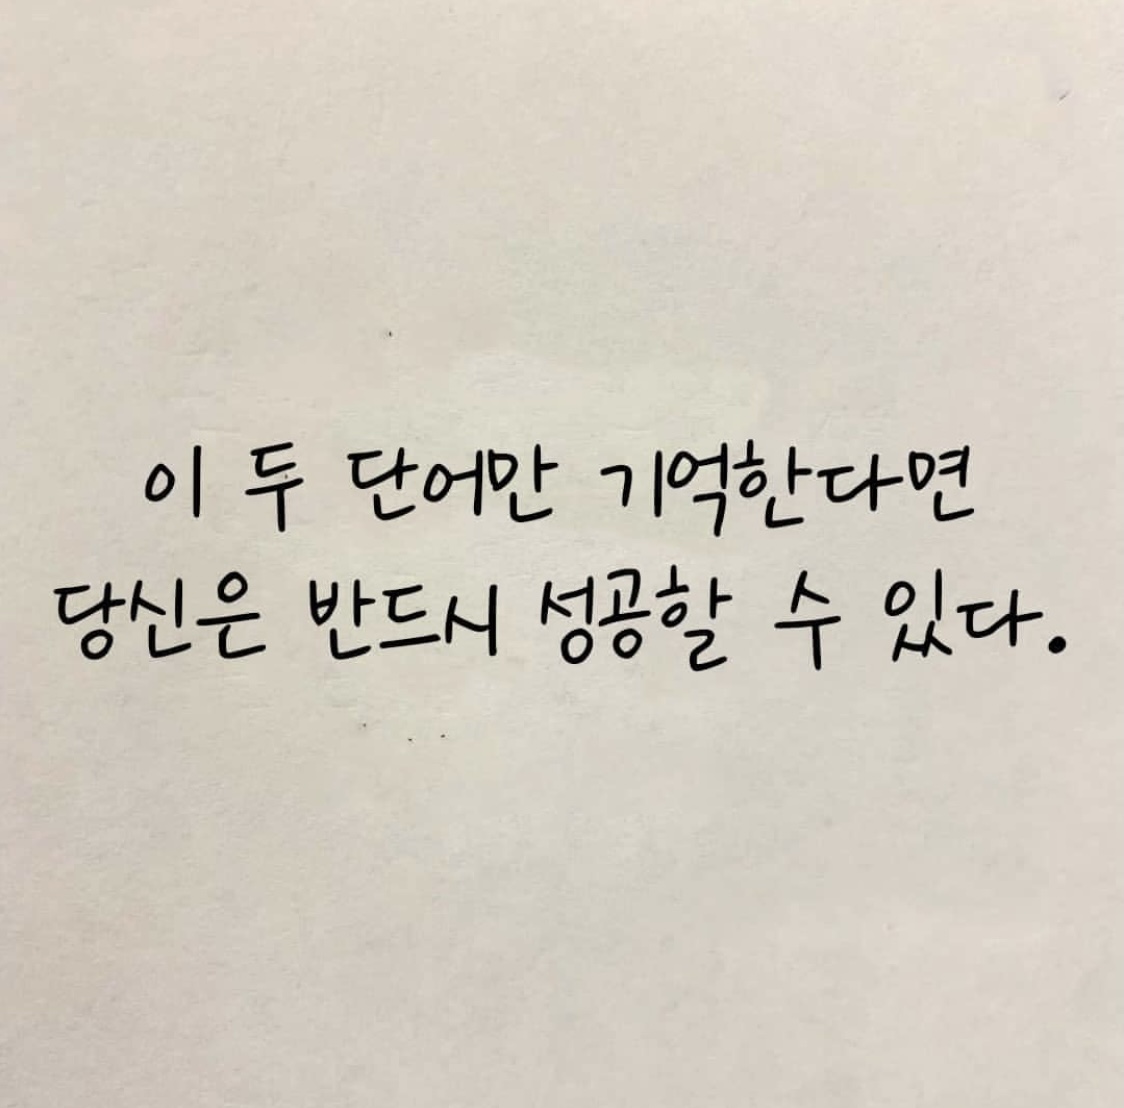 이 두 단어만 기억한다면
당신은 반드시 성공할 수 있다.